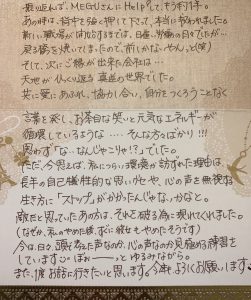 思い悩んで、MEGUさんにHelp!してもう約1年。
あの時は、背中を強く押して下さって、本当に救われました。
新しい職場が開始するまでは、日雇い労働の日々でしたが…
戻る橋を焼いてしまったので、前しかないやん、と(笑)
そして、次にご縁が出来た会社は…
天地がひっくり返る真逆の世界でした。
共に愛にあふれ、協力し合い、自分をつくろうことなく
言葉を発し、お茶目な笑いと元気なエネルギーが
循環しているような…… そんな方々ばかり!!!
思わず「な…なんじゃこりゃ!?」でした。
ただ、今思えば、私につらい環境が訪ずれた理由は、
長年の自己犠牲的な思いグセや、心の声を無視する
生き方に「ストップ」がかかったんじゃないかなと。
敵だと思っていたあの方は、それを破る為に現れてくれました。
(なぜか、私のやめた後、すぐに彼女もやめたそうです)
今は日々、頭で考えた声なのか、心の声なのか見極める練習を
しています♪♪ ぼぉーーっと ゆるみながら。
また、1度 お話に行きたいと思います。今年もよろしくお願いします。